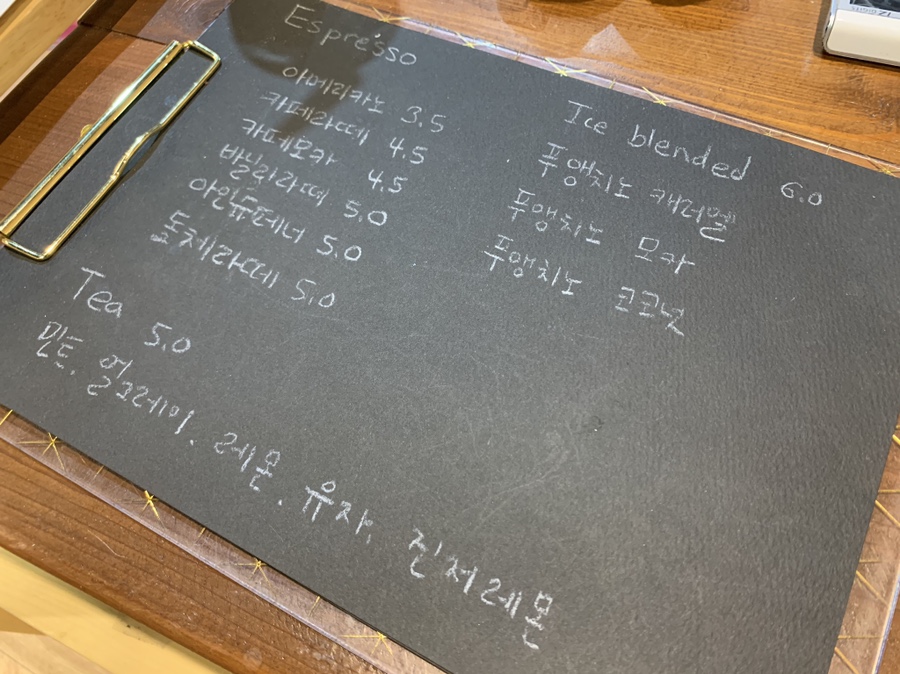 Espresso
아메리카노 3.5
카페라떼 4.5
카페모카 4.5
바닐라라떼 5.0
아인슈페너 5.0
돌체라떼 5.0
Tea 5.0
민트. 얼그레이. 레몬. 유자. 진저레몬
Ice blended 6.0
푸앵치노 캐러멜
푸앵치노 모카
푸앵치노 코코넛